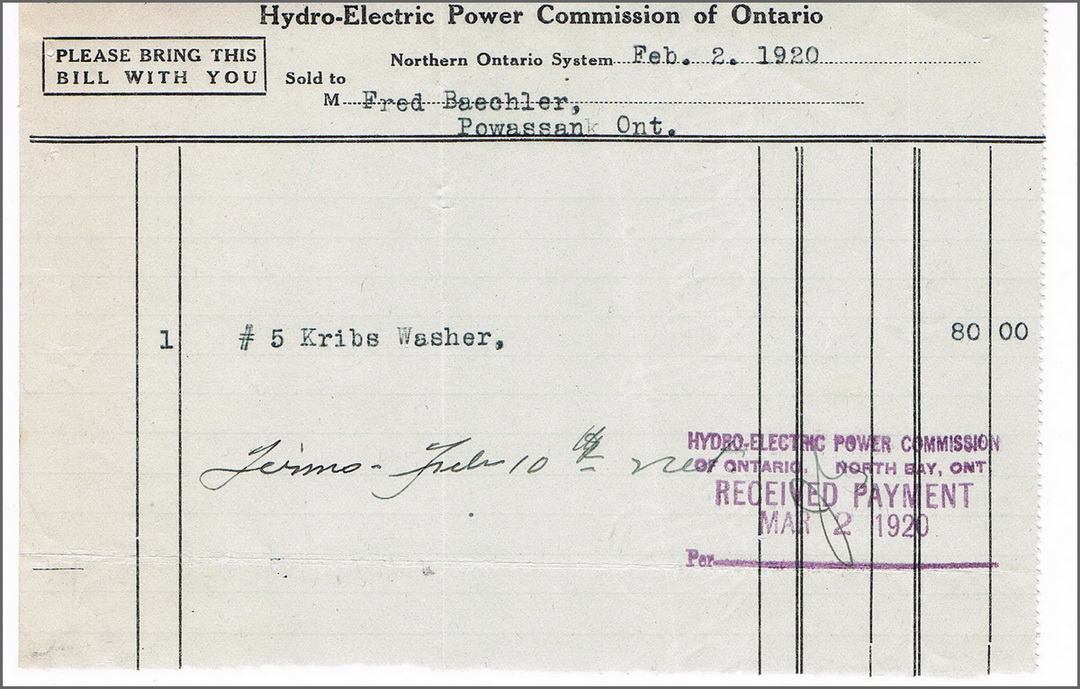 Hydro-Electric Power Commission of Ontario
PLEASE BRING THIS
BILL WITH YOU
Northern Ontario System Feb. 2. 1920
Sold to
M Fred Baechler,
Powassank Ont.
1 # 5 Kribs Washer, 80 00
Terms - Feb 10th net
HYDRO-ELECTRIC POWER COMMISSION
OF ONTARIO. NORTH BAY, ONT
RECEIVED PAYMENT
MAR 2 1920
Per